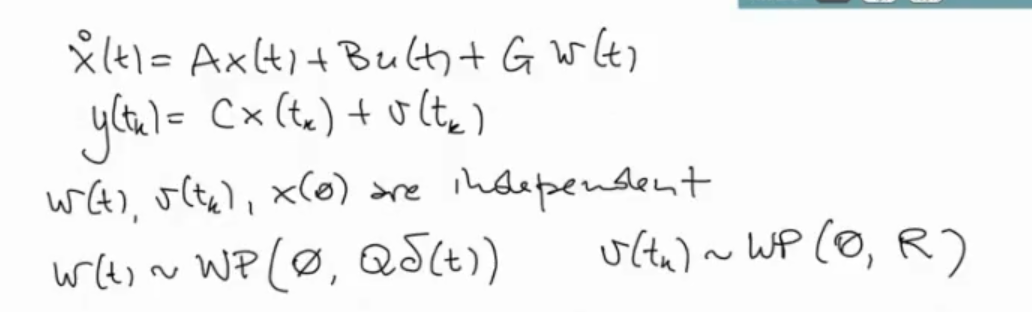 ẋ(t) = Ax(t) + Bu(t) + G w(t)
y(tₖ) = Cx(tₖ) + v(tₖ)
w(t), v(tₖ), x(∅) are independent
w(t) ~ WP(∅, Qδ(t)) v(tₖ) ~ WP(∅, R)